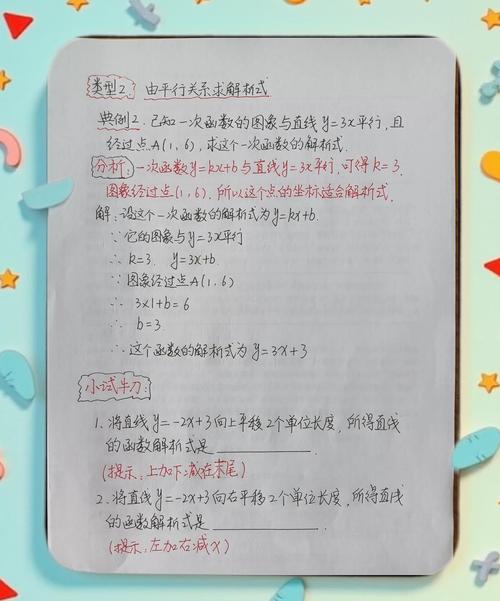 类型2. 由平行关系求解析式
典例2. 已知一次函数的图象与直线y=3x平行,且
经过点A(1,6),求这个一次函数的解析式.
分析: 一次函数y=kx+b与直线y=3x平行,可得k=3.
图象经过点(1,6).所以这个点的坐标适合解析式.
解:设这个一次函数的解析式为y=kx+b.
∵它的图象与y=3x平行
∴k=3. y=3x+b.
∵图象经过点A(1,6)
∴ 3×1+b=6
∴ b=3.
∴这个函数的解析式为y=3x+3
小试牛刀:
1. 将直线y=-2x+3向上平移2个单位长度,所得直线
的函数解析式是
(提示:上加下减在末尾)
2. 将直线y=-2x+3向右平移2个单位长度,所得直线
的函数解析式是
(提示:左加右减x)